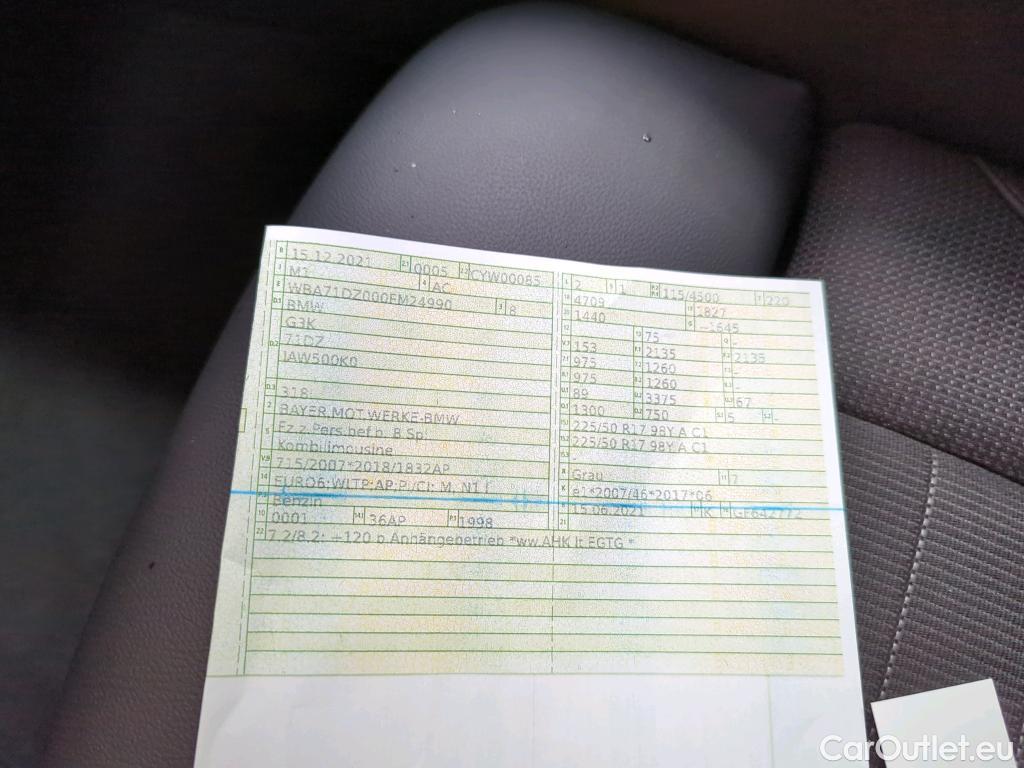 B 15.12.2021 2.1 0005 2.2 CYW00085
J M1 4 AC
E WBA71DZ000FM24990 3 8
D.1 BMW
D.2 G3K
71DZ
JAW500K0
D.3 318i
2 BAYER.MOT.WERKE-BMW
5 Fz.z.Pers.bef.b. 8 Spl.
Kombilimousine
V.9 715/2007*2018/1832AP
14 EURO6;WLTP;AP;P/CI; M, N1 I
P.3 Benzin
10 0001 14.1 36AP P.1 1998
22 7.2/8.2: +120 b.Anhängebetrieb *ww.AHK lt.EGTG *
L 2 9 1 P.2 P.4 115/4500 T 220
18 4709 19 1827
20 1440 G --1645
12 - 13 75 Q -
V.7 153 F.1 2135 F.2 2135
7.1 975 7.2 1260 7.3 -
8.1 975 8.2 1260 8.3 -
U.1 89 U.2 3375 U.3 67
O.1 1300 O.2 750 S.1 5 S.2 -
15.1 225/50 R17 98Y A C1
15.2 225/50 R17 98Y A C1
15.3 -
R Grau 11 7
K e1*2007/46*2017*06
6 15.06.2021 17 K 16 GF642772
21
CarOutlet.eu